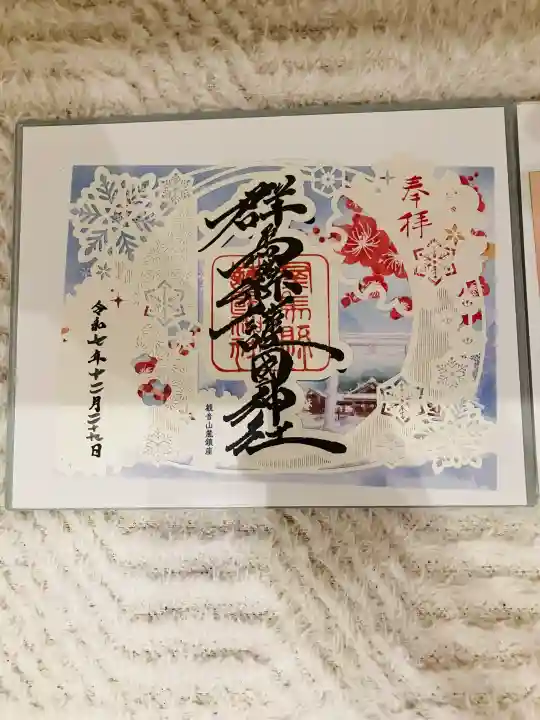 奉拝
群馬縣護國神社
群馬縣護國神社
観音山麓鎮座
令和七年十二月二十九日